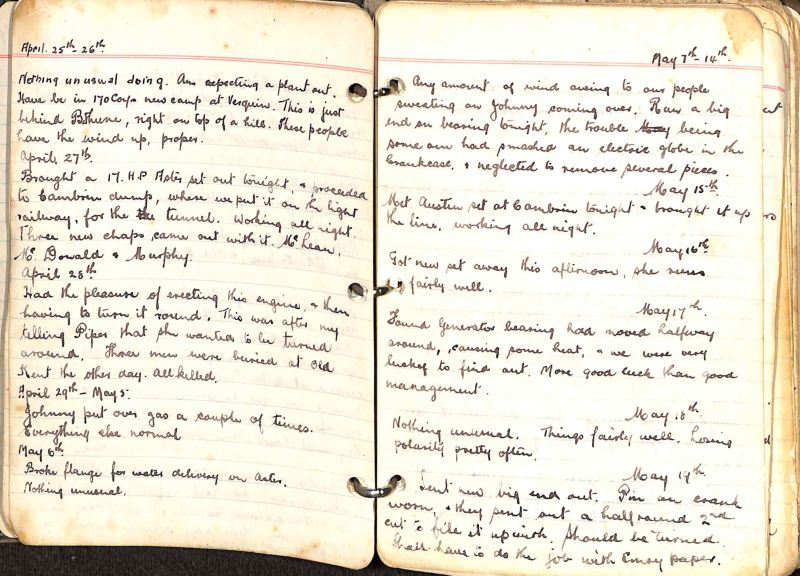 April. 25th - 26th.
Nothing unusual doing. Am expecting a plant out.
Have be in 170 Coys new camp at Verquin. This is just
behind Bethune, right on top of a hill. These people
have the wind up, proper.
April 27th.
Brought a 17. H.P Aster set out tonight, & proceeded
to Cambrin dump, where we put it on the light
railway, for the tunnel. Working all night.
Three new chaps, came out with it. McLean,
Mc Donald & Murphy.
April 28th.
Had the pleasure of erecting this engine, & then
having to turn it round. This was after my
telling Pipes that she wanted to be turned
around. Three men were buried at Old
Kent the other day. All killed.
April 29th - May 5.
Johnny put over gas a couple of times.
Everything else normal
May 6th.
Broke flange for water delivery on Aster.
Nothing unusual.
May 7th - 14th.
Any amount of wind owing to our people
sweating on Johnny coming over. Run a big
end on bearing tonight, the trouble being
some one had smashed an electric globe in the
Crankcase, & neglected to remove several pieces.
May 15th.
Met Austin set at Cambrin tonight & brought it up
the line, working all night.
May 16th.
Got new set away this afternoon, she runs
fairly well.
May 17th.
Found Generator bearing had moved halfway
around, causing some heat, & we were very
lucky to find out. More good luck than good
management.
May 18th.
Nothing unusual. Things fairly well. Losing
polarity pretty often.
May 19th.
Sent new big end out. Pin on crank
worn, & they sent out a half round 2nd
cut to file it up with. Should be turned.
Shall have to do the job with Emory paper.